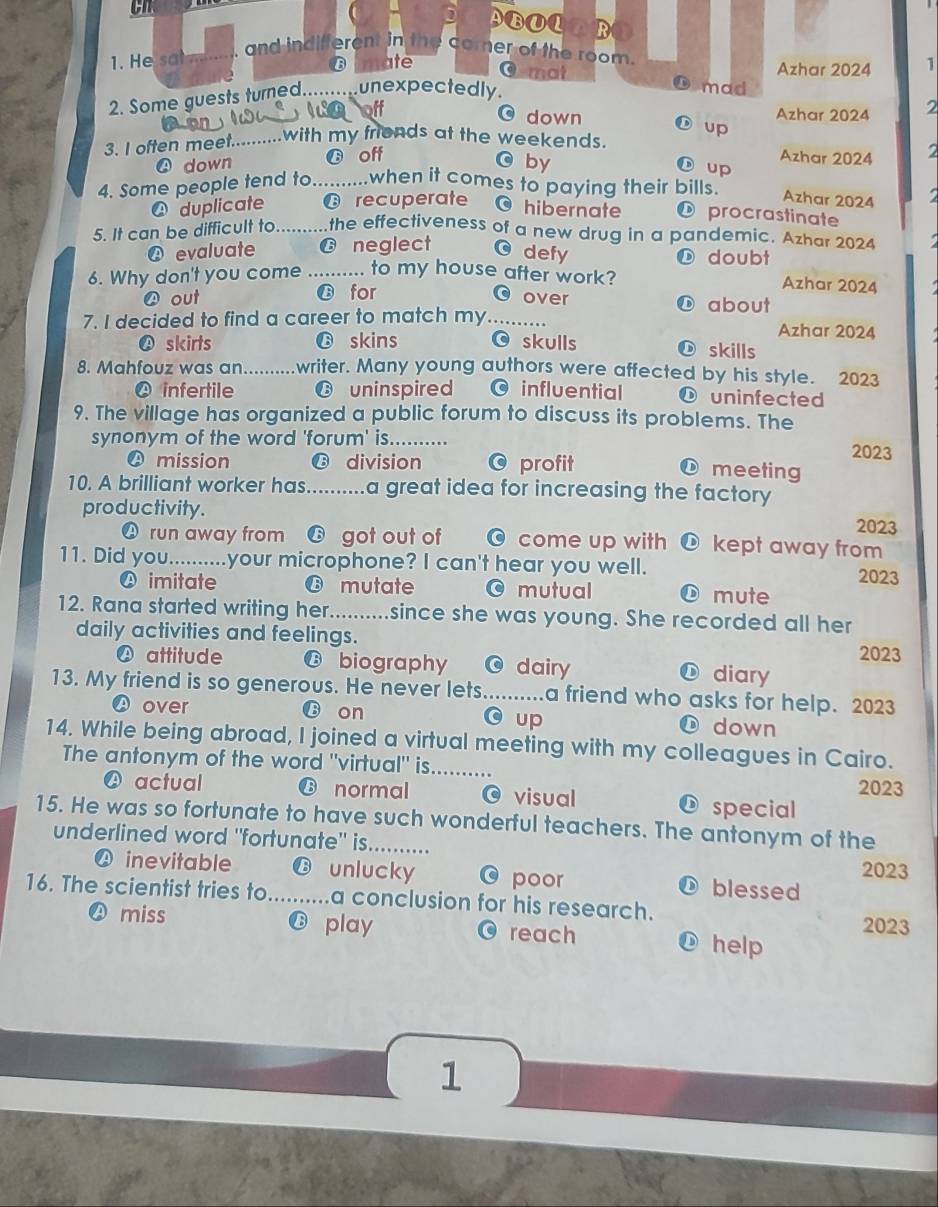 1. He sat .......... and indifferent in the corner of the room. Azhar 2024
B mate C mat D mad
2. Some guests turned..........unexpectedly. Azhar 2024
A on B off C down D up
3. I often meet..........with my friends at the weekends. Azhar 2024
A down B off C by D up
4. Some people tend to..........when it comes to paying their bills. Azhar 2024
A duplicate B recuperate C hibernate D procrastinate
5. It can be difficult to..........the effectiveness of a new drug in a pandemic. Azhar 2024
A evaluate B neglect C defy D doubt
6. Why don't you come .......... to my house after work? Azhar 2024
A out B for C over D about
7. I decided to find a career to match my.......... Azhar 2024
A skirts B skins C skulls D skills
8. Mahfouz was an..........writer. Many young authors were affected by his style. 2023
A infertile B uninspired C influential D uninfected
9. The village has organized a public forum to discuss its problems. The
synonym of the word 'forum' is.......... 2023
A mission B division C profit D meeting
10. A brilliant worker has..........a great idea for increasing the factory
productivity. 2023
A run away from B got out of C come up with D kept away from
11. Did you..........your microphone? I can't hear you well. 2023
A imitate B mutate C mutual D mute
12. Rana started writing her..........since she was young. She recorded all her
daily activities and feelings. 2023
A attitude B biography C dairy D diary
13. My friend is so generous. He never lets..........a friend who asks for help. 2023
A over B on C up D down
14. While being abroad, I joined a virtual meeting with my colleagues in Cairo.
The antonym of the word "virtual" is.......... 2023
A actual B normal C visual D special
15. He was so fortunate to have such wonderful teachers. The antonym of the
underlined word "fortunate" is.......... 2023
A inevitable B unlucky C poor D blessed
16. The scientist tries to..........a conclusion for his research. 2023
A miss B play C reach D help
1